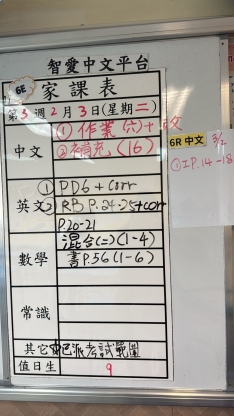 智愛中文平台
6E 家課表
第3週2月3日(星期二)
中文 ①作業(六)+改文
②補充(16)
英文 ①PD6+corr
②RB P.24-25+corr
P.20-21
數學 混合(二)(1-4)
書P.56(1-6)
常識
其它 已派考試範圍
值日生 9
6R中文 3/2
①工P.14-18